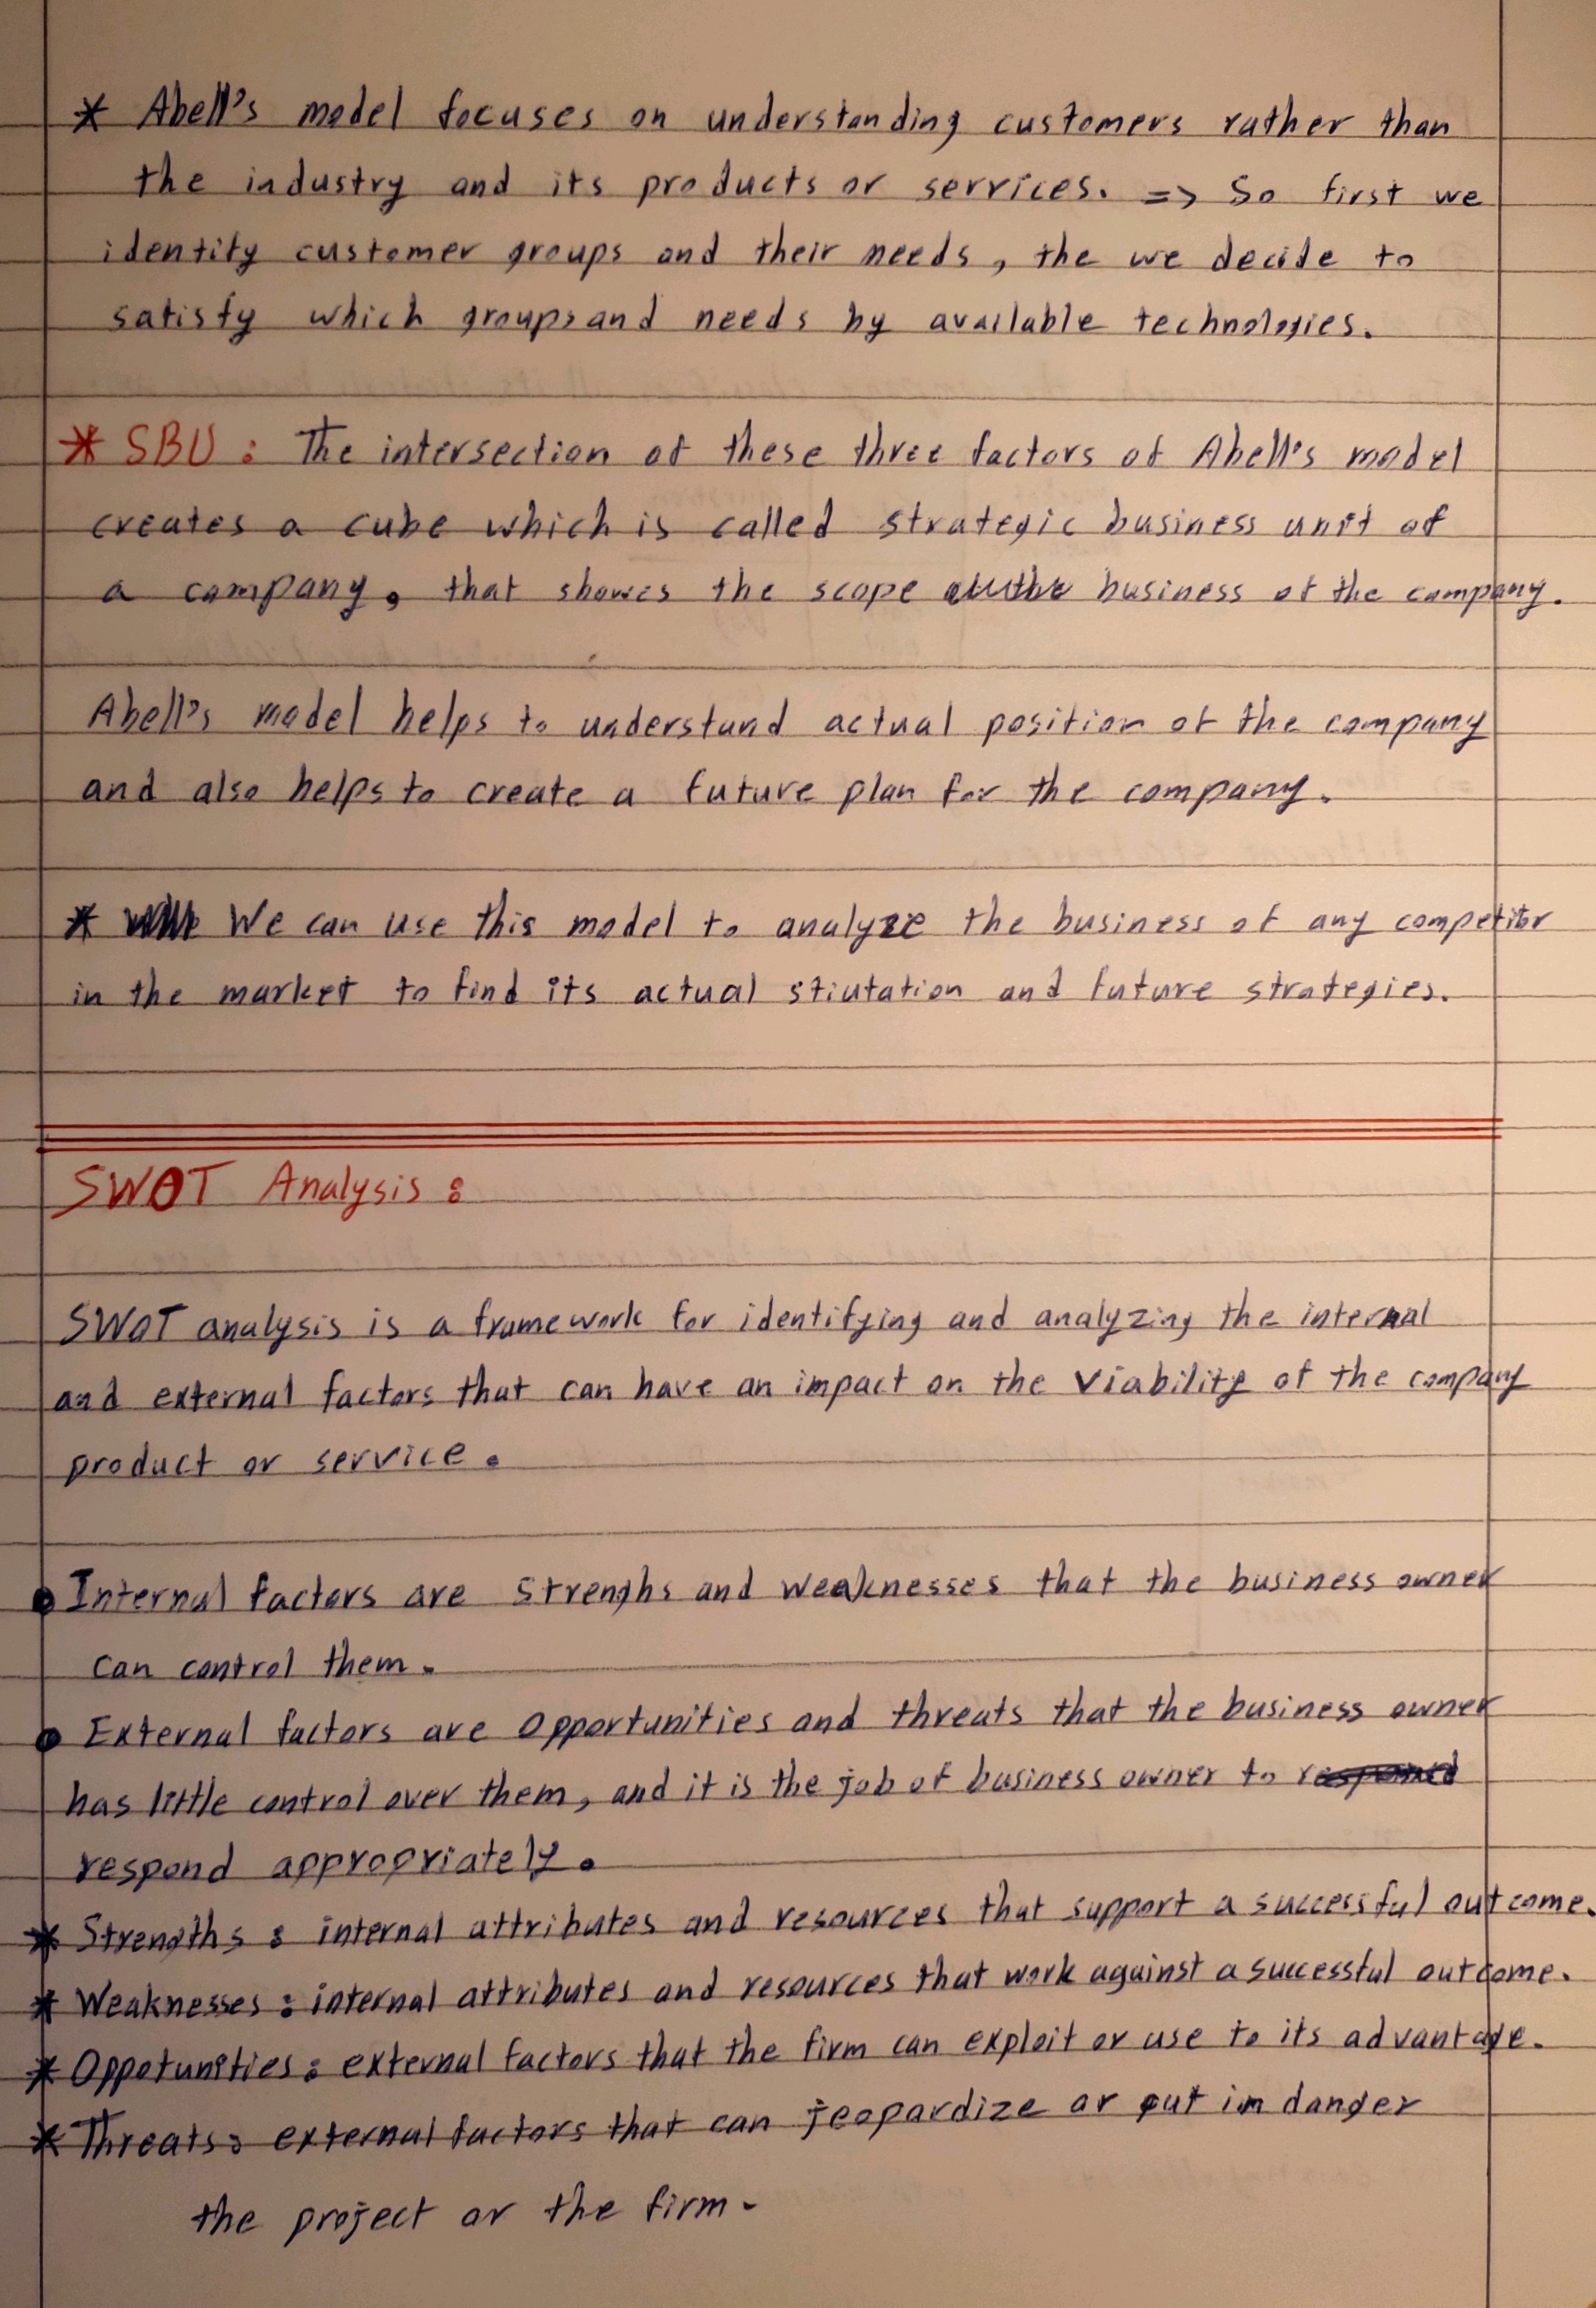 * Abell's model focuses on understanding customers rather than
the industry and its products or services. => So first we
identify customer groups and their needs, the we decide to
satisfy which groups and needs by available technologies.
* SBU : The intersection of these three factors of Abell's model
creates a cube which is called strategic business unit of
a company, that showes the scope business of the company.
Abell's model helps to understand actual position of the company
and also helps to create a future plan for the company.
* We can use this model to analyze the business of any competitor
in the market to find its actual stiutation and future strategies.
SWOT Analysis :
SWOT analysis is a framework for identifying and analyzing the internal
and external factors that can have an impact on the viability of the company
product or service.
• Internal factors are strenghs and weaknesses that the business owner
can control them.
• External factors are opportunities and threats that the business owner
has little control over them, and it is the job of business owner to respond
respond appropriately.
* Strengths : internal attributes and resources that support a successful outcome.
* Weaknesses : internal attributes and resources that work against a successful outcome.
* Oppotunities : external factors that the firm can exploit or use to its advantage.
* Threats : external factors that can jeopardize or put in danger
the project or the firm.